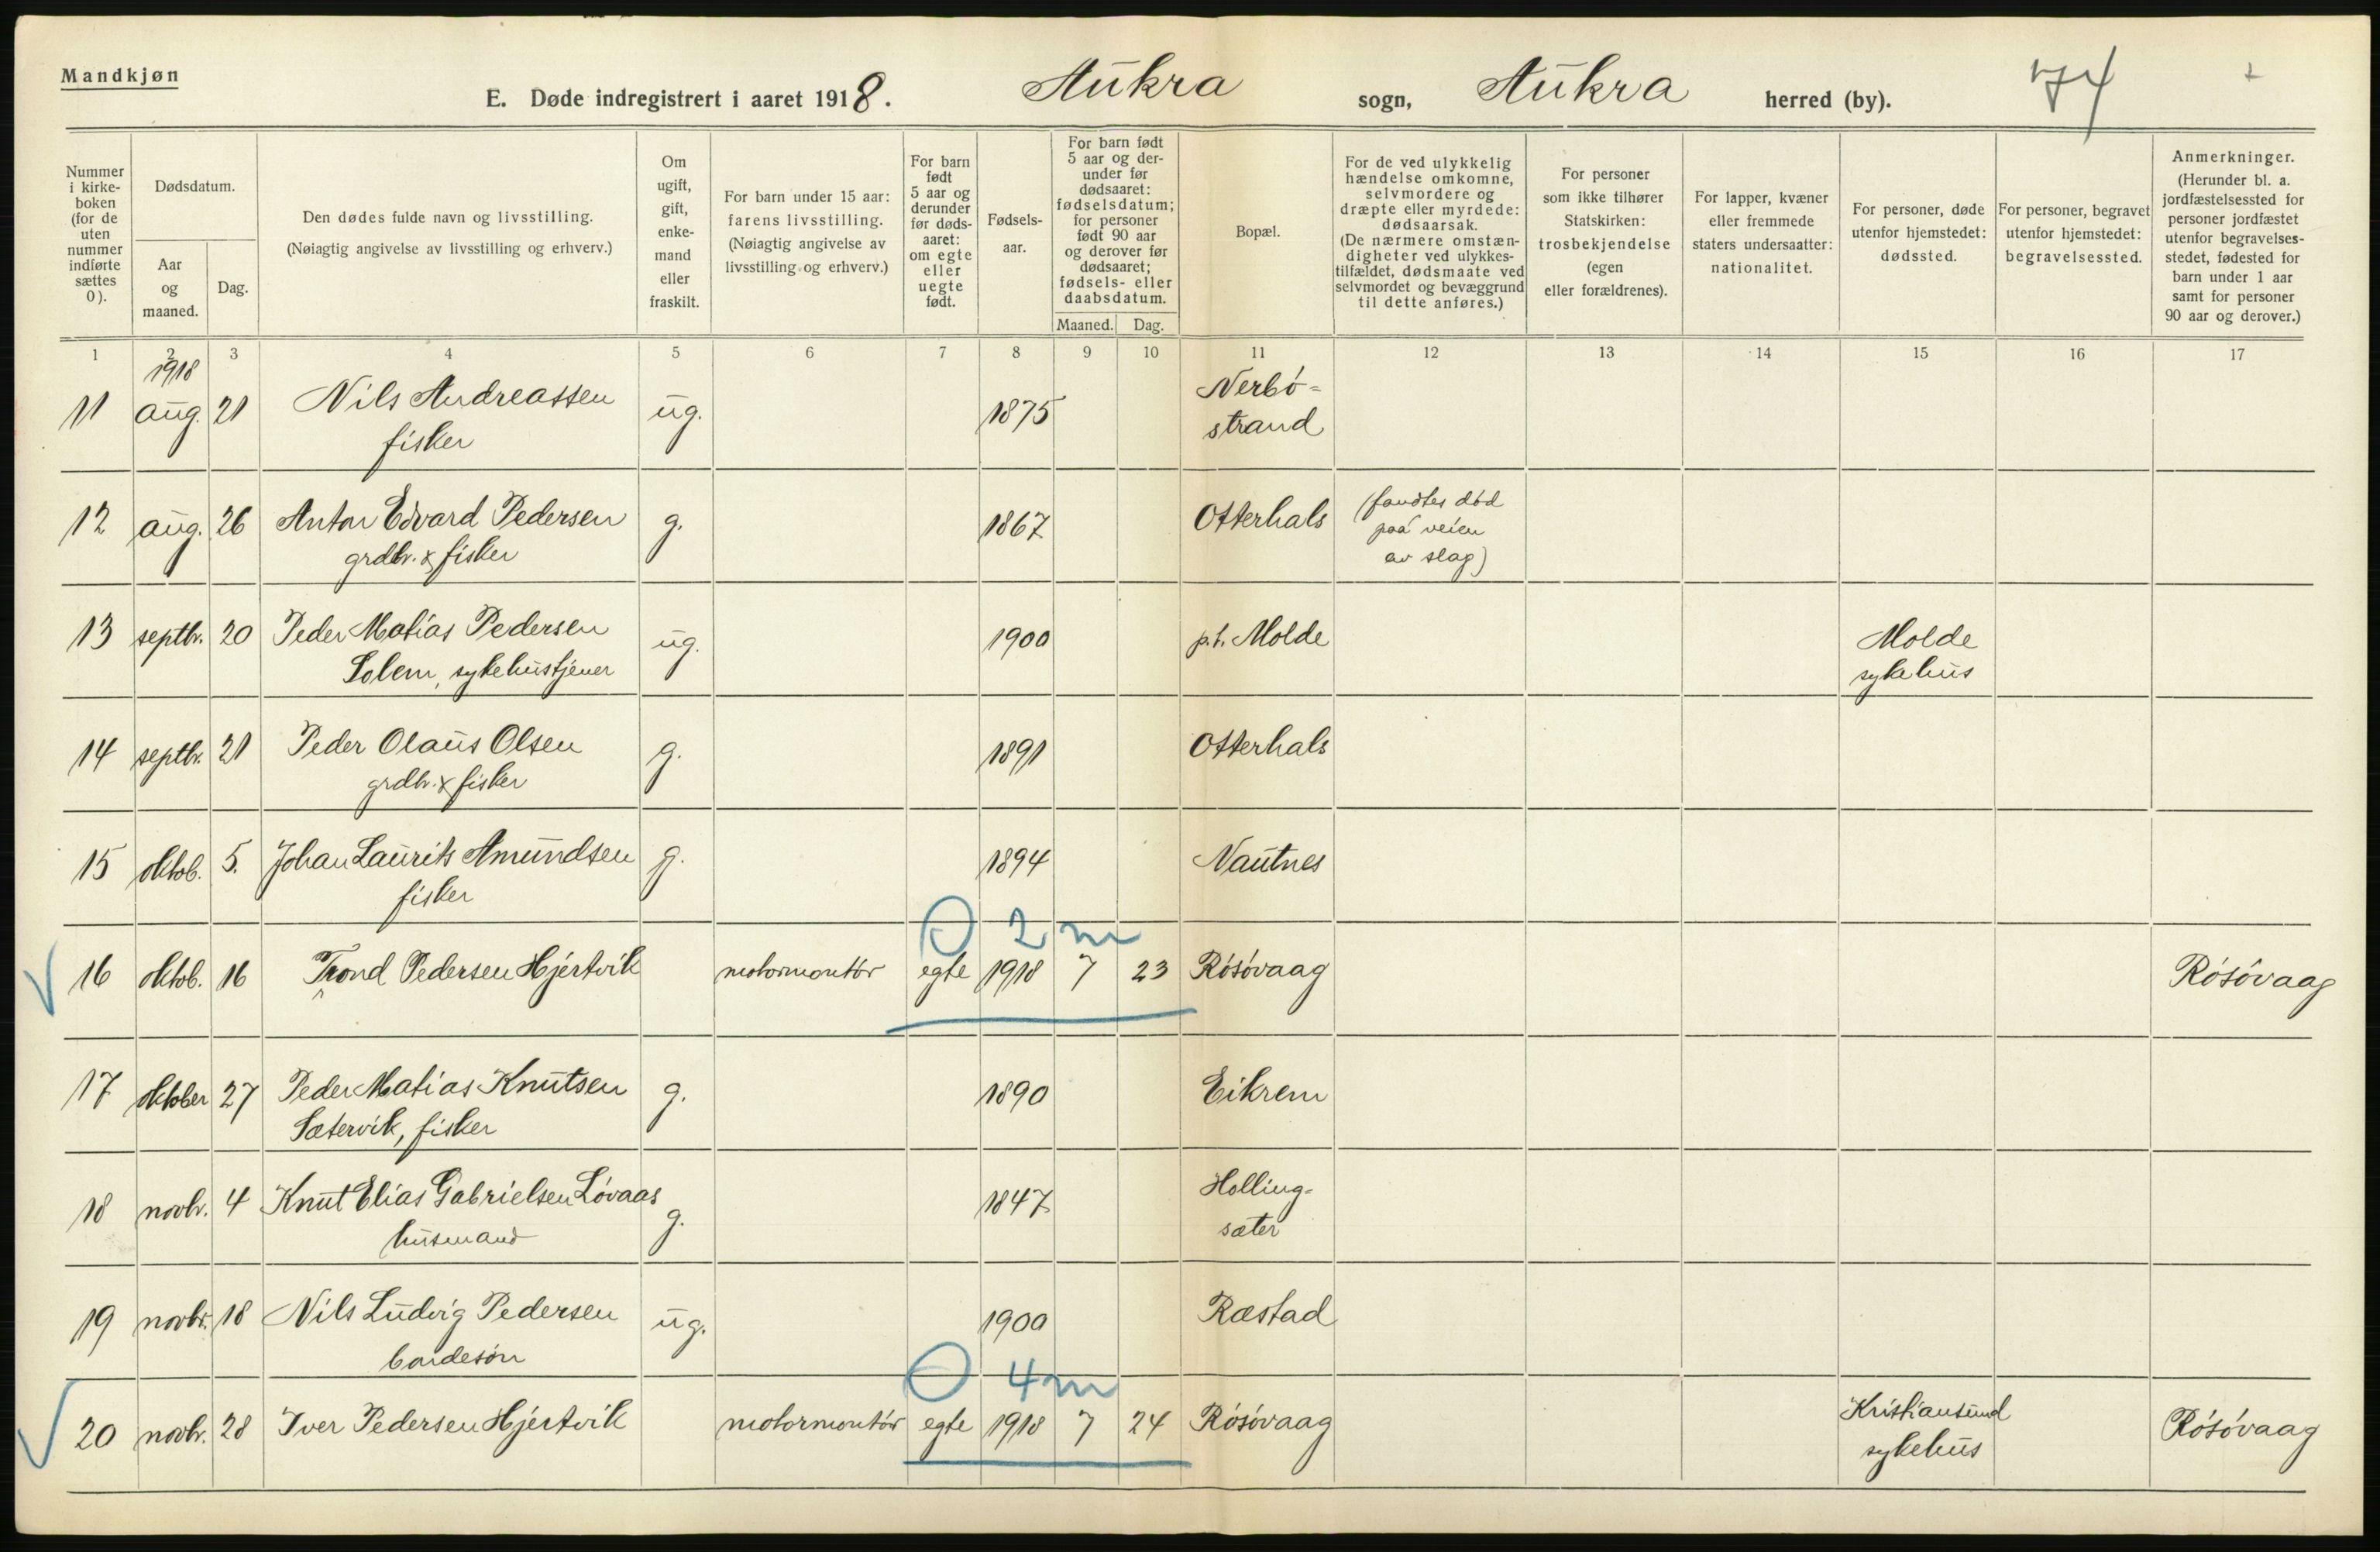 Mandkjøn
E. Døde indregistrert i aaret 1918. Aukra sogn, Aukra herred (by). 74
Nummer i kirke-boken (for de uten nummer indførte sættes 0).
Dødsdatum.
Aar og maaned.
Dag.
Den dødes fulde navn og livsstilling.
(Nøiagtig angivelse av livsstilling og erhverv.)
Om ugift, gift, enke-mand eller fraskilt.
For barn under 15 aar: farens livsstilling.
(Nøiagtig angivelse av livsstilling og erhverv.)
For barn født 5 aar og derunder før døds-aaret: om egte eller uegte født.
Fødsels-aar.
For barn født 5 aar og der-under før dødsaaret: fødselsdatum; for personer født 90 aar og derover før dødsaaret; fødsels- eller daabsdatum.
Maaned. Dag.
Bopæl.
For de ved ulykkelig hændelse omkomne, selvmordere og dræpte eller myrdede: dødsaarsak.
(De nærmere omstæn-digheter ved ulykkes-tilfældet, dødsmaate ved selvmordet og bevæggrund til dette anføres.)
For personer som ikke tilhører Statskirken: trosbekjendelse (egen eller forældrenes).
For lapper, kvæner eller fremmede staters undersaatter: nationalitet.
For personer, døde utenfor hjemstedet: dødssted.
For personer, begravet utenfor hjemstedet: begravelsessted.
Anmerkninger.
(Herunder bl. a. jordfæstelsessted for personer jordfæstet utenfor begravelses-stedet, fødested for barn under 1 aar samt for personer 90 aar og derover.)
1 2 3 4 5 6 7 8 9 10 11 12 13 14 15 16 17
1918
11 aug. 21 Nils Andreassen ug. 1875 Nerbö=
fisker strand
12 aug. 26 Anton Edvard Pedersen g. 1867 Otterhals (fandtes död
grdbr. & fisker paa veien
av slag)
13 septbr. 20 Peder Matias Pedersen ug. 1900 p.t. Molde Molde
Solem, sykehustjener sykehus
14 septbr. 21 Peder Olaus Olsen g. 1891 Otterhals
grdbr. & fisker
15 oktob. 5. Johan Laurits Amundsen g. 1894 Nautnes
fisker
2 m
16 oktob. 16 Trond Pedersen Hjertvik motormontör egte 1918 7 23 Rösövaag Rösövaag
17 oktober 27 Peder Matias Knutsen g. 1890 Eikrem
Sætervik, fisker
18 novbr. 4 Knut Elias Gabrielsen Lövaas g. 1847 Holling-
husmand sæter
19 novbr. 18 Nils Ludvig Pedersen ug. 1900 Ræstad
bondesön
4 m
20 novbr. 28 Iver Pedersen Hjertvik motormontör egte 1918 7 24 Rösövaag Kristiansund Rösövaag
sykehus